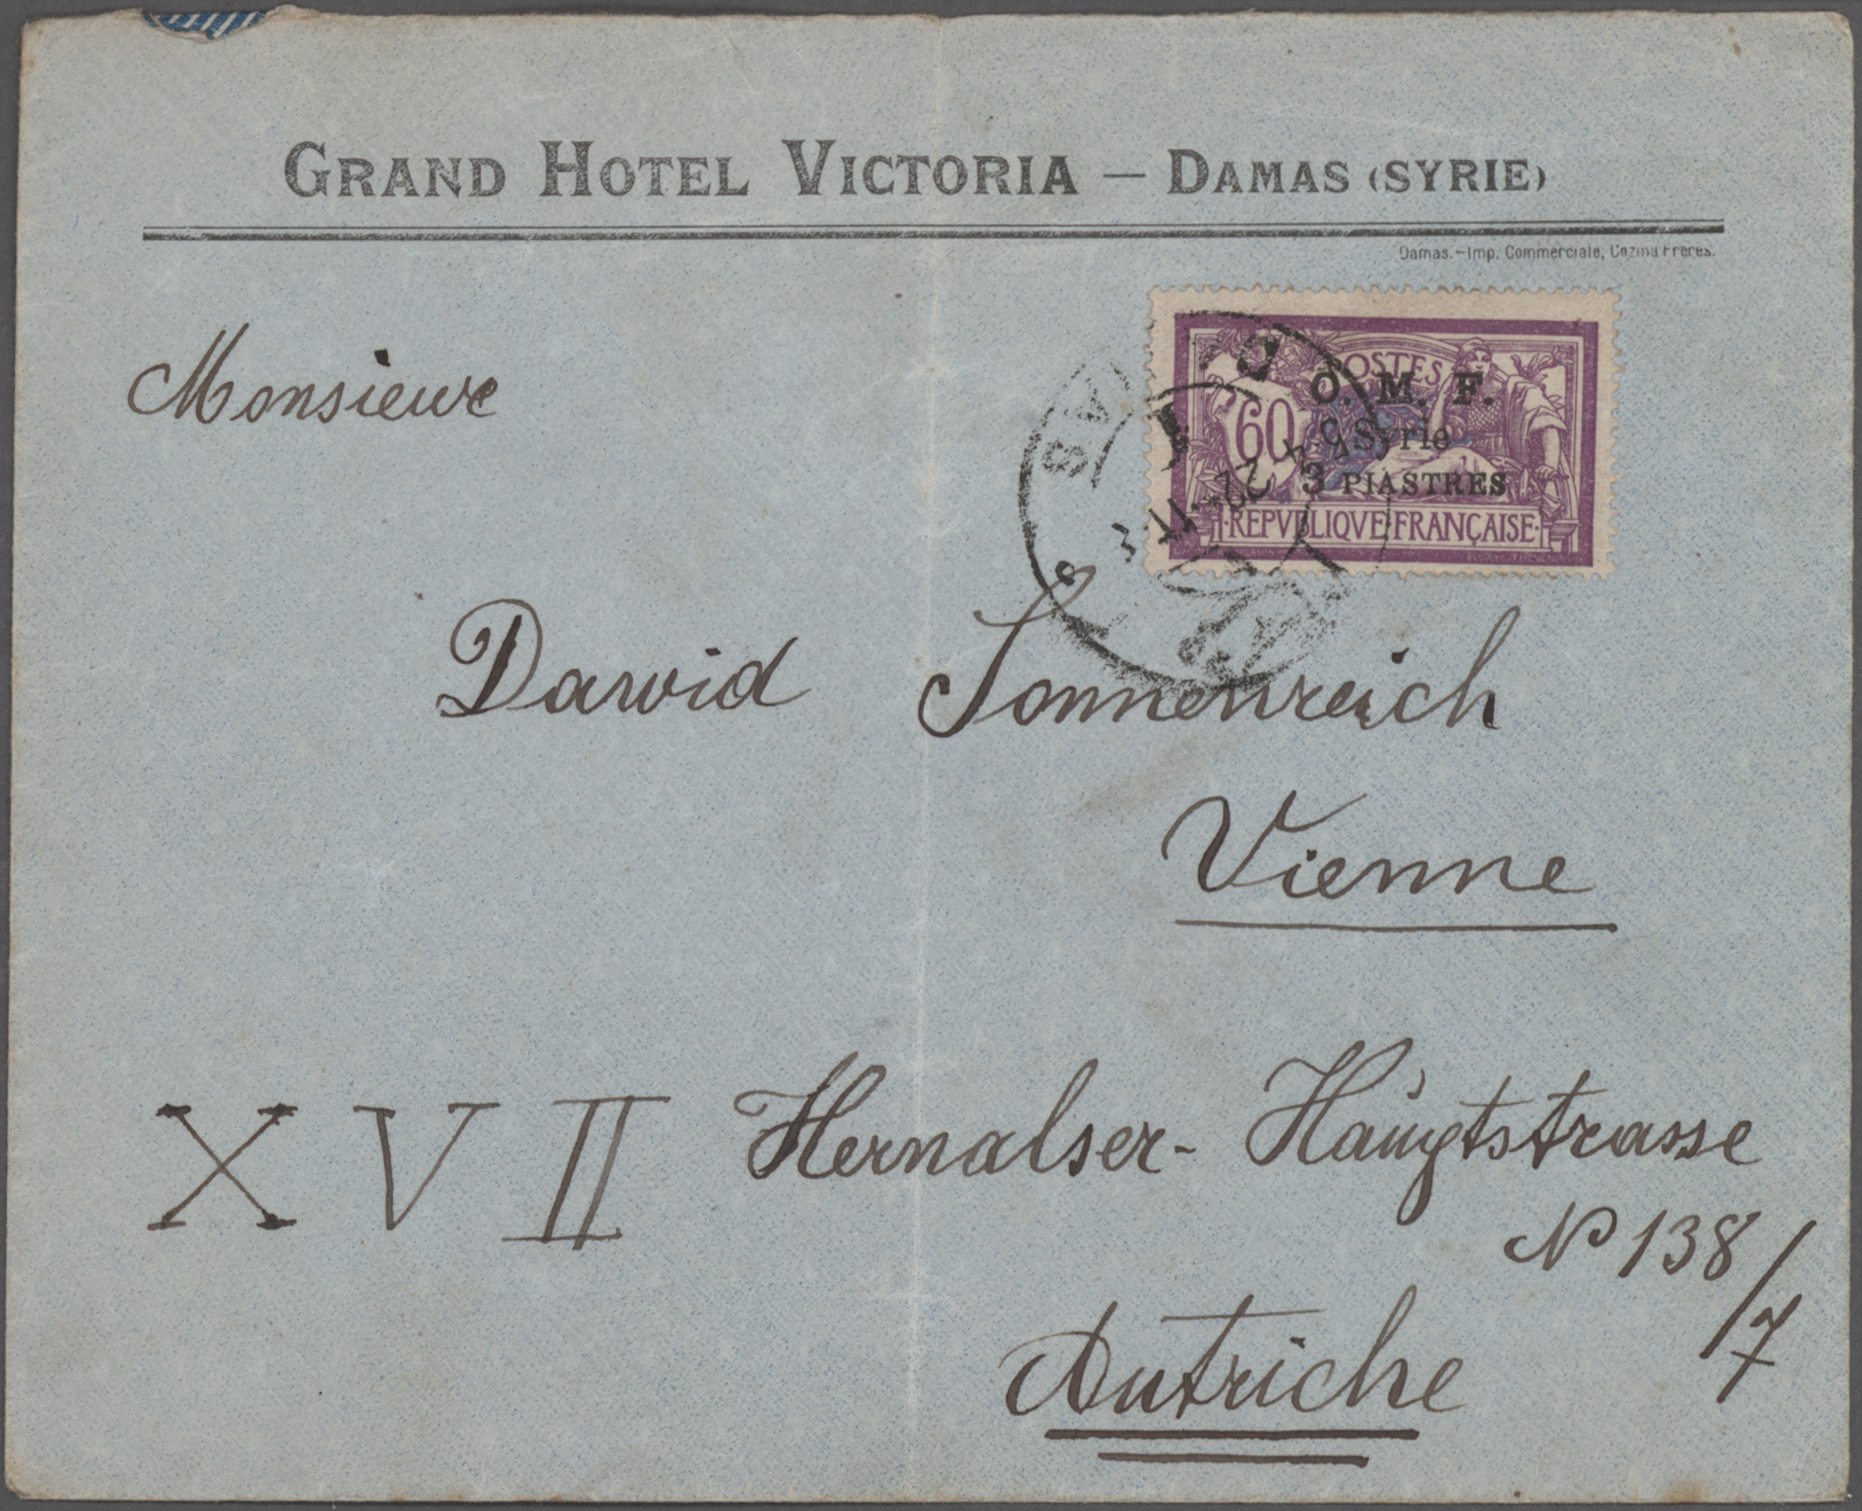 GRAND HOTEL VICTORIA — DAMAS (SYRIE)
Damas.-Imp. Commerciale, Cozma Freres.
Monsieur
POSTES
O. M. F.
60
Syrie
3 PIASTRES
REPVBLIQVE FRANÇAISE
DAMAS
22-11
Dawid Sonnenreich
Vienne
XVII Hernalser-Hauptstrasse
No 138/7
Autriche